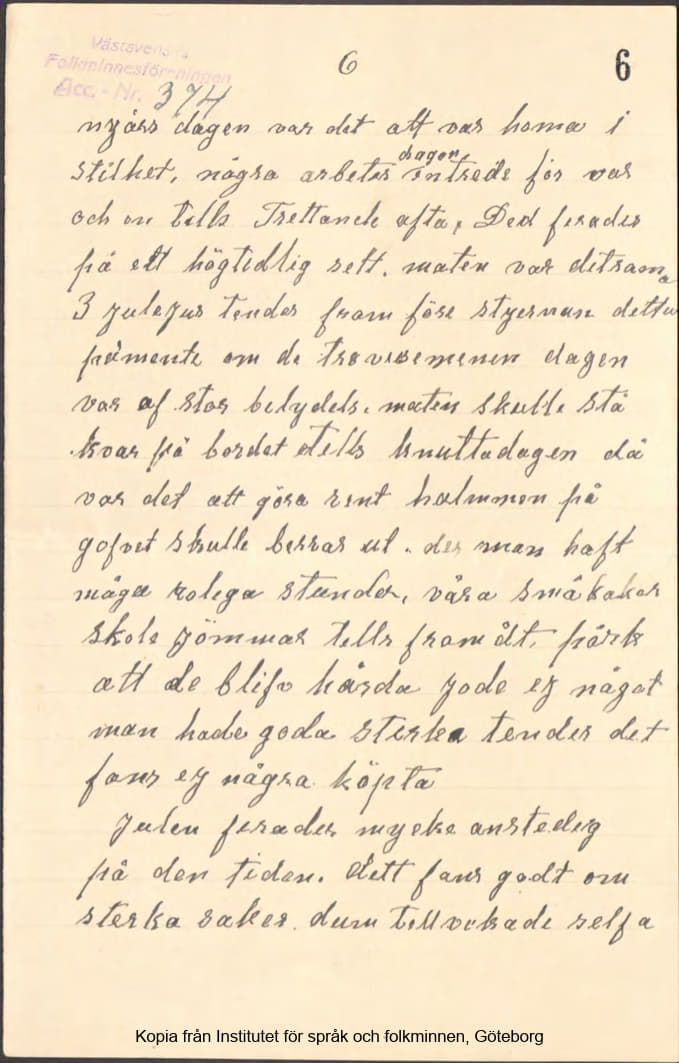 Västsvenska
Folkminnesföreningen
Acc. - Nr. 374
6
6
nyårs dagen var det att var homa i
stilhet, några arbeter dragon intrede för var
och en tills Trettande afta, Ded firades
på ett högtidlig sett. maten var detsama
3 juleljus tendes fram före styernan detta
påmente om de tre visemenen dagen
var af stor betydels. maten skulle stå
kvar på bordet tills knuttadagen då
var det att göra rent halmmen på
gofvet skulle berras ut. der man haft
måga rolega stunder, våra småkakor
skole jömmas tills fram åt, 
att de blifv hårda jode ej något
man hade goda sterka tender det
fans ej några köpta
Julen firades myke anstedig
på den tiden. dett fans godt om
sterka saker. dum tillvekade selfa
Kopia från Institutet för språk och folkminnen, Göteborg